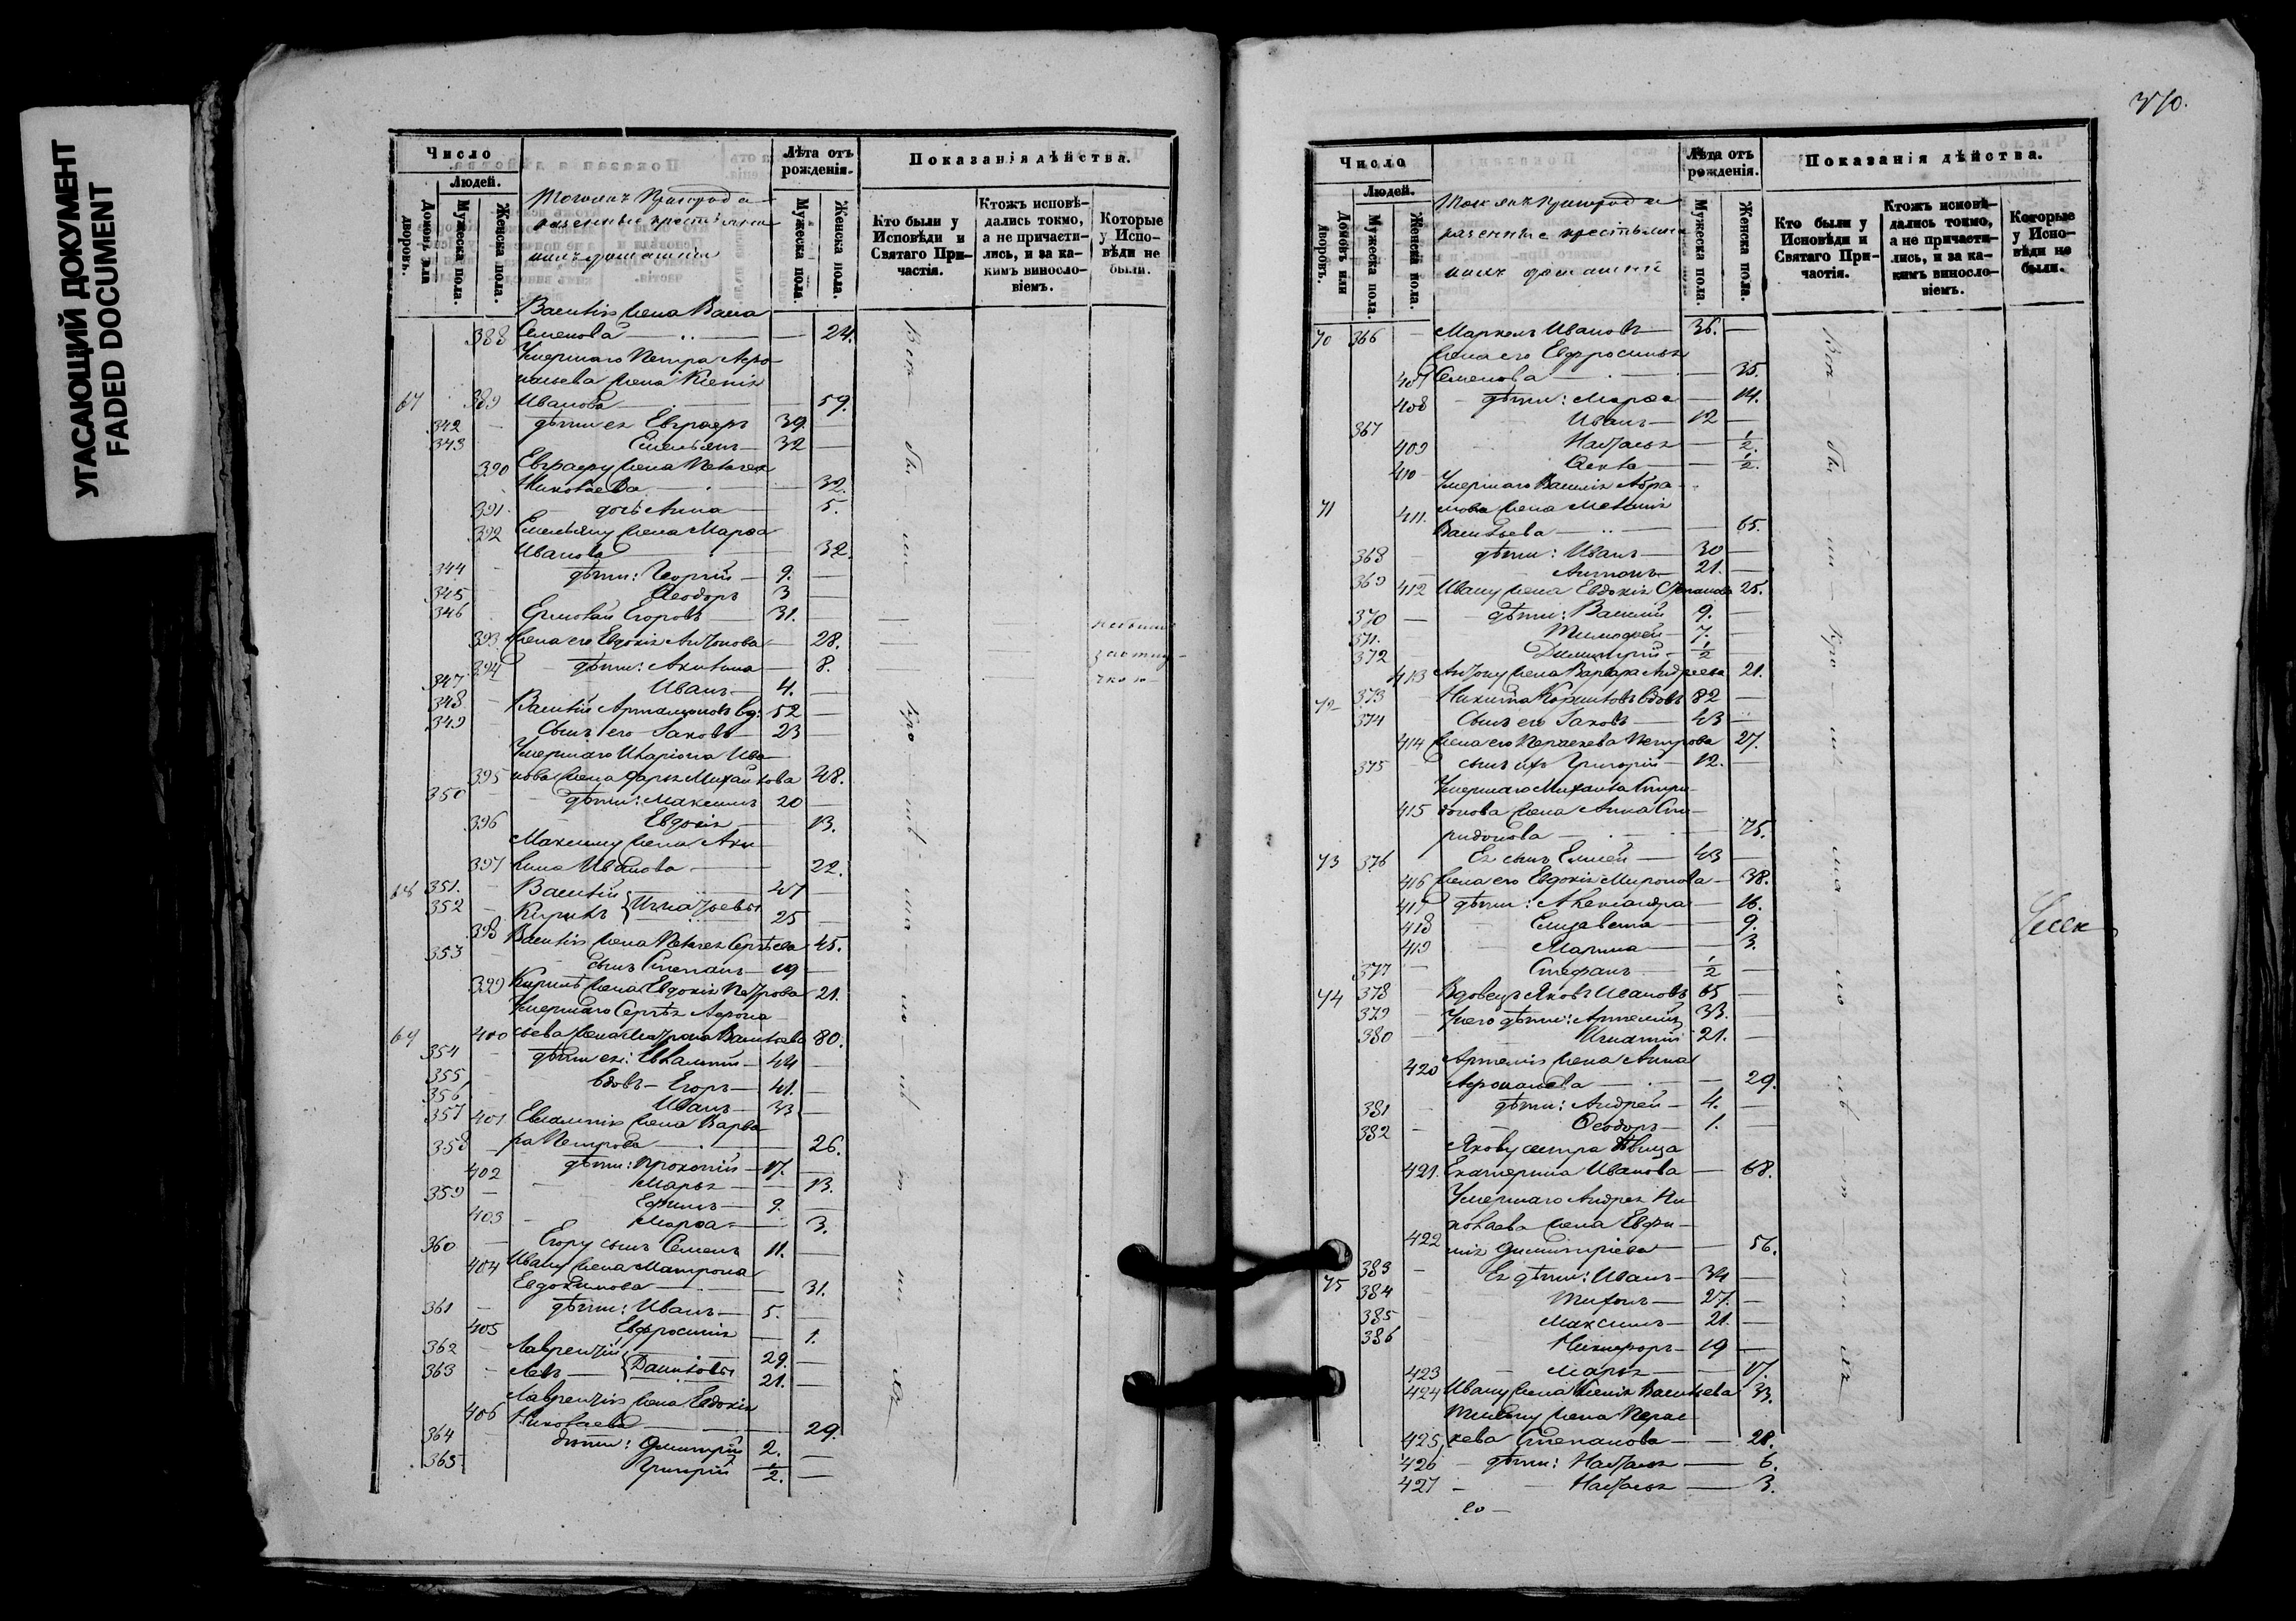 УГАСАЮЩИЙ ДОКУМЕНТ
FADED DOCUMENT
Число
Людей.
Домовъ или дворовъ.
Мужеска пола.
Женска пола.
казенные крестьяне
ихъ домашніи
Лѣта отъ рожденія.
Мужеска пола.
Женска пола.
Показанія дѣйства.
Кто были у Исповѣди и Святаго Причастія.
Ктожъ исповѣдались токмо, а не причастились, и за какимъ винословіемъ.
Которые у Исповѣди не были.
Василія жена Васса
388 Семенова — 24.
Умершаго Петра Афонасьева жена Ксенія
67 389 Иванова — 59.
342 дѣти ея Евграфъ 39
343 Емельянъ 32
390 Евграфу жена Пелагея
Николаева 32.
391 дочь Анна 5.
392 Емельяну жена Марфа
Иванова 32.
344 дѣти: Георгій 9.
345 Ѳеодоръ 3
346 Ермолай Егоровъ 31.
393 жена его Евдокія Антонова 28.
394 дѣти: Акилина 8.
347 Иванъ 4.
348 Василій Артамоновъ вд: 52
349 Сынъ его Іаковъ 23
Умершаго Иларіона Ива-
395 нова жена Дарья Михайлова 48.
350 дѣти: Максимъ 20
396 Евдокія 13.
Максиму жена Аки-
397 лина Иванова 22.
68 351. Василій } Игнатьевы 47
352 Кирилъ 25
398 Василія жена Пелагея Сергѣева 45.
353 сынъ Степанъ 19
399 Кирилѣ жена Евдокія Петрова 21.
Умершаго Сергѣя Афона-
69 400 сьева жена Матрона Васильева 80.
354 дѣти ея: Евлампій 44
355 вдовъ Егоръ 41.
356 Иванъ 33
357 401 Евлампія жена Варва-
358 ра Петрова 26.
402 дѣти: Прокопій 17.
Марья 13.
359 Ефимъ 9.
403 Марфа 3.
360 Егору сынъ Семенъ 11.
404 Ивану жена Матрона
Евдокимова 31.
361 дѣти: Иванъ 5.
405 Евфросинія 1.
362 Лаврентій } Даниловы 29.
363 Левъ 21.
Лаврентія жена Евдокія
406 Николаева 29.
364 дѣти: Димитрій 2.
365 Григорій 1/2.
Число
Людей.
Домовъ или дворовъ.
Мужеска пола.
Женска пола.
казенные крестьяне
ихъ домашніи
Лѣта отъ рожденія.
Мужеска пола.
Женска пола.
Показанія дѣйства.
Кто были у Исповѣди и Святаго Причастія.
Ктожъ исповѣдались токмо, а не причастились, и за какимъ винословіемъ.
Которые у Исповѣди не были.
70 366 Маркелъ Ивановъ 36.
жена его Евфросинья
407 Семенова 35.
408 дѣти: Марфа 14.
367 Иванъ 12
409 Наталья 1/2
410 Ѳекла 1/2.
Умершаго Василія Абра-
71 411. мова жена Меланія
Васильева 65.
368 дѣти: Иванъ 30
369 Антонъ 21.
412 Ивану жена Евдокія Степанова 25.
370 дѣти: Василій 9.
371. Тимофей 7.
372 Димитрій 1/2
413 Антону жена Варвара Андреева 21.
72 373 Никита Корниловъ вдовъ 82
374 Сынъ его Іаковъ 43
414 жена его Параскева Петрова 27.
375 сынъ ихъ Григорій 12.
Умершаго Михаила Спири-
415 донова жена Анна Спи-
ридонова 75.
73 376 Ея сынъ Елисей 43
416 жена его Евдокія Миронова 38.
417 дѣти: Александра 16.
418 Елизавета 9.
419 Марина 3.
377 Стефанъ 1/2
74 378 Вдовецъ Яковъ Ивановъ 65
379 У него дѣти: Артемій 33.
380 Игнатій 21.
420 Артемія жена Анна
Афонасьева 29.
381 дѣти: Андрей 4.
382 Ѳеодоръ 1.
Якову сестра дѣвица
421. Екатерина Иванова 68.
Умершаго Андрея Ни-
колаева жена Евфи-
422 мія Димитріева 56.
383 Ея дѣти: Иванъ 34
75 384 Тихонъ 27.
385 Максимъ 21.
386 Никифоръ 19
423 Марья 17.
424 Ивану жена Ксенія Васильева 33.
Тихону жена Парас-
425 кева Степанова 28.
426 дѣти: Наталья 6.
427 Наталья 3.